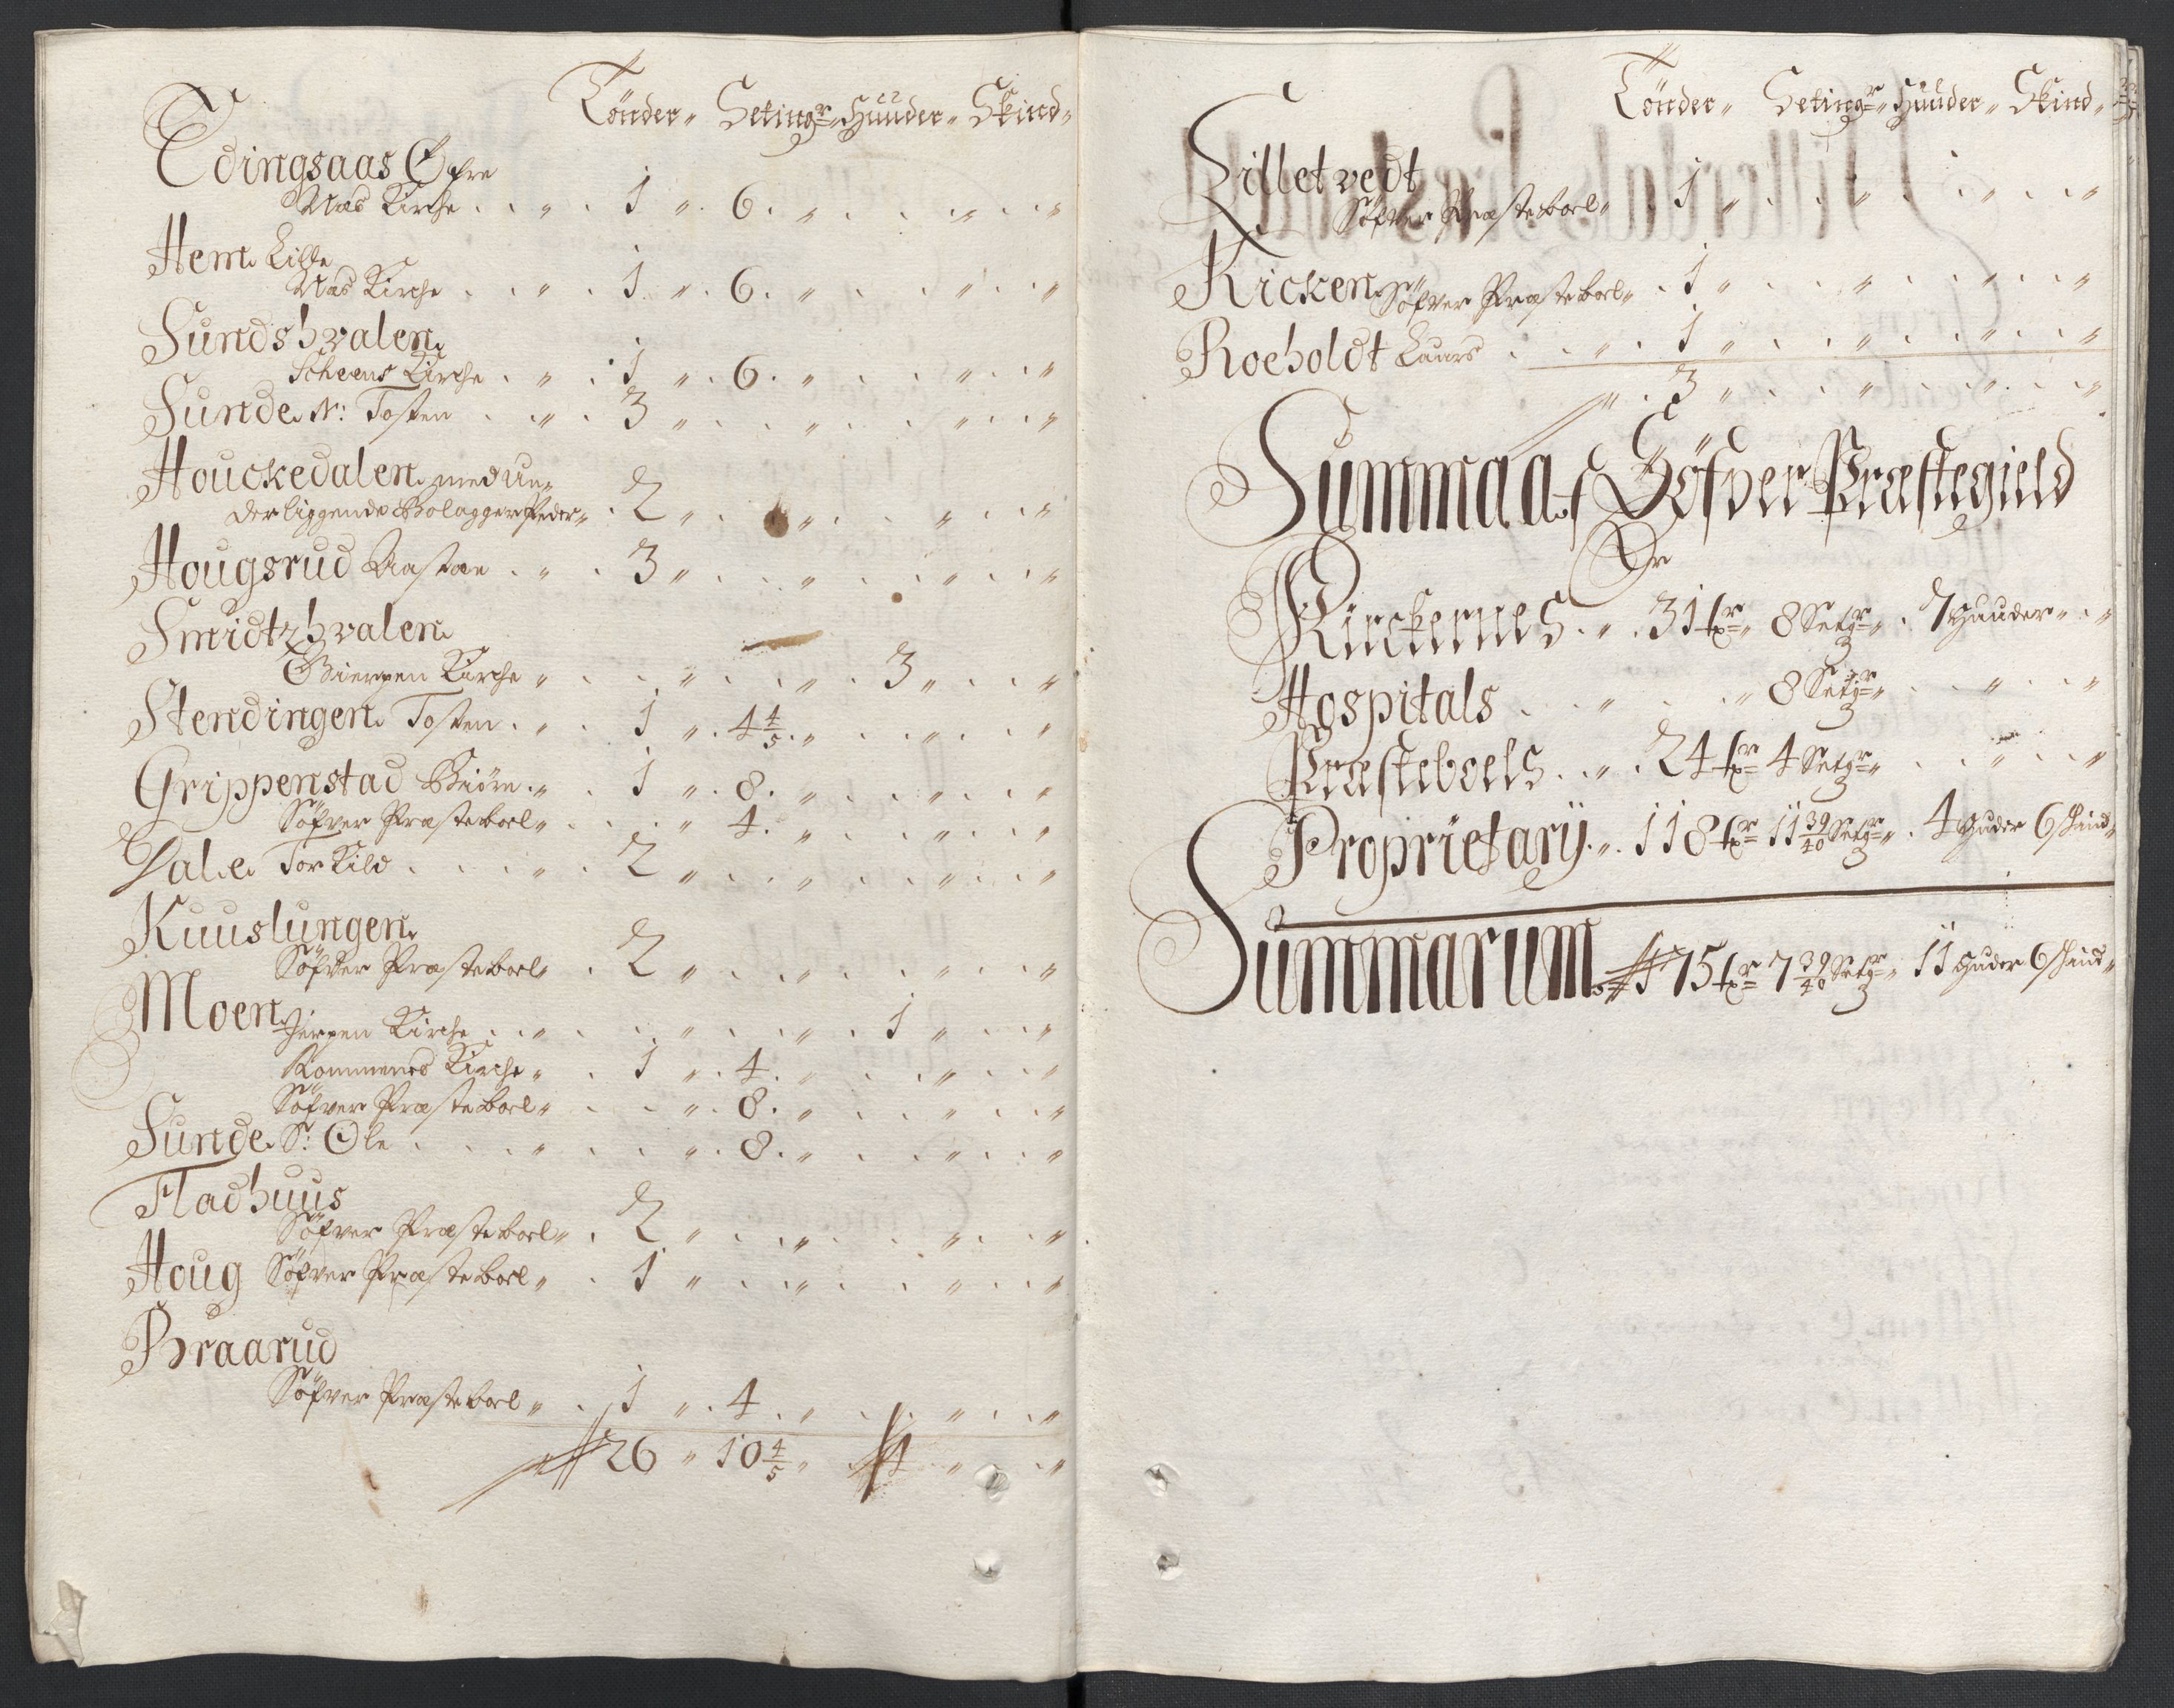 Tönder „ Setingr „ Huuder „ Skind „
Edingsaas Øfre
Næs Kirche . . „ . 1 „ . 6 . „ . . „ . . „
Hem Lille
Næs Kirche . . „ . 1 „ . 6 . „ . . „ . . „
Sundshvalen
Scheens Kirche . „ . 1 „ . 6 . „ . . „ . . „
Sunde N: Tosten . . „ . 3 „ . . „ . . „ . . „
Houckedalen med un-
derliggende Bolagger Peder „ . 2 „ . . „ . . „ . . „
Hougsrud Aastae . „ . 3 „ . . „ . . „ . . „
Smidtzhvalen
Gierpen Kirche „ . . „ . . „ . 3 „ . . „
Stendingen Tosten . „ . 1 „ . 4 4/5 . „ . . „ . . „
Grippenstad Biörn . „ . 1 „ . 8 . „ . . „ . . „
Söfver Præsteboel „ . . „ 4 . „ . . „ . . „
Dale Torkild . . . „ . 2 „ . . „ . . „ . . „
Kuuslungen
Söfver Præsteboel „ . 2 „ . . „ . . „ . . „
Moen Jerpen Kirche . . „ . . „ . . „ . 1 „ . . „
Rommenes Kirche „ . 1 „ . 4 . „ . . „ . . „
Söfver Præsteboel „ . . „ . 8 . „ . . „ . . „
Sunde S: Ole . . . „ . . „ . 8 . „ . . „ . . „
Fladhuus
Söfver Præsteboel „ . 2 „ . . „ . . „ . . „
Houg Söfver Præsteboel „ . 1 „ . . „ . . „ . . „
Braarud
Söfver Præsteboel „ . 1 „ . 4 . „ . . „ . . „
26 „ 10 4/5 „ . 4 „ . . „
Tönder „ Setingr „ Huuder „ Skind „
Lilletvedt
Söfver Præsteboel „ . 1 „ . . „ . . „ . . „
Kicken Söfver Præsteboel „ . 1 „ . . „ . . „ . . „
Roeholdt Laurs . . „ . 1 „ . . „ . . „ . . „
„ . 3 „ . . „ . . „ . . „
Summa af Söfver Præstegield
Er
Kirckernes . „ . 31 txr „ 8 Setgr „ . 7 Huuder „ . „
Hospitals . . „ . . „ 8 Setgr „ . . „ . . „
Præsteboels . „ . 24 txr 4 Setgr „ . . „ . . „
Proprietarÿ . „ . 118 txr 11 39/40 Setgr „ . 4 Huder 6 skind „
Summarum 175 txr 7 39/40 Setgr „ 11 Huder 6 skind „